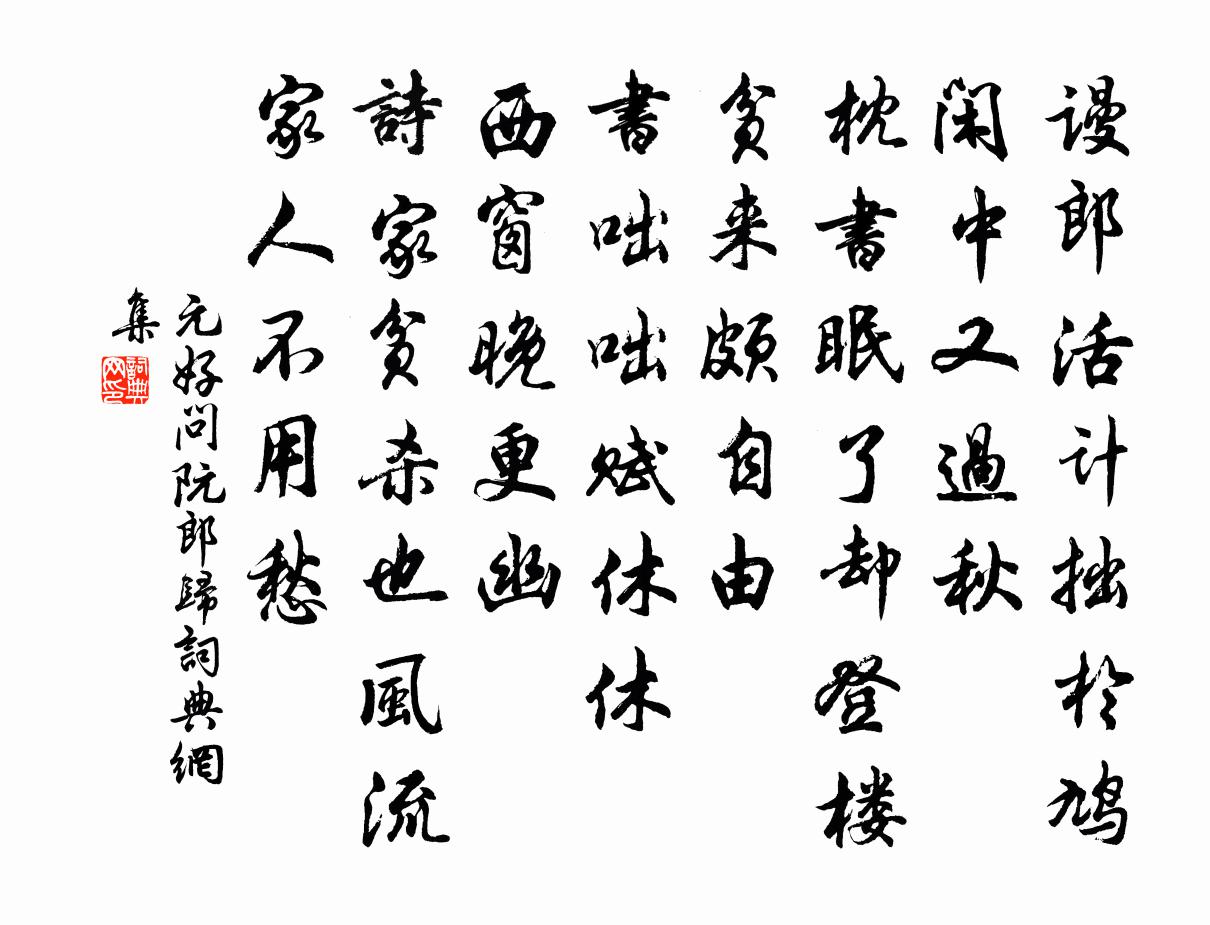 谩郎活计拙於鸠
闲中又過秋
枕書眠了却登楼
贫来颇自由
書咄咄赋休休
西窗晚更幽
詩家贫杀也風流
家人不用愁
元好问阮郎歸詞典網
集
詞典網印